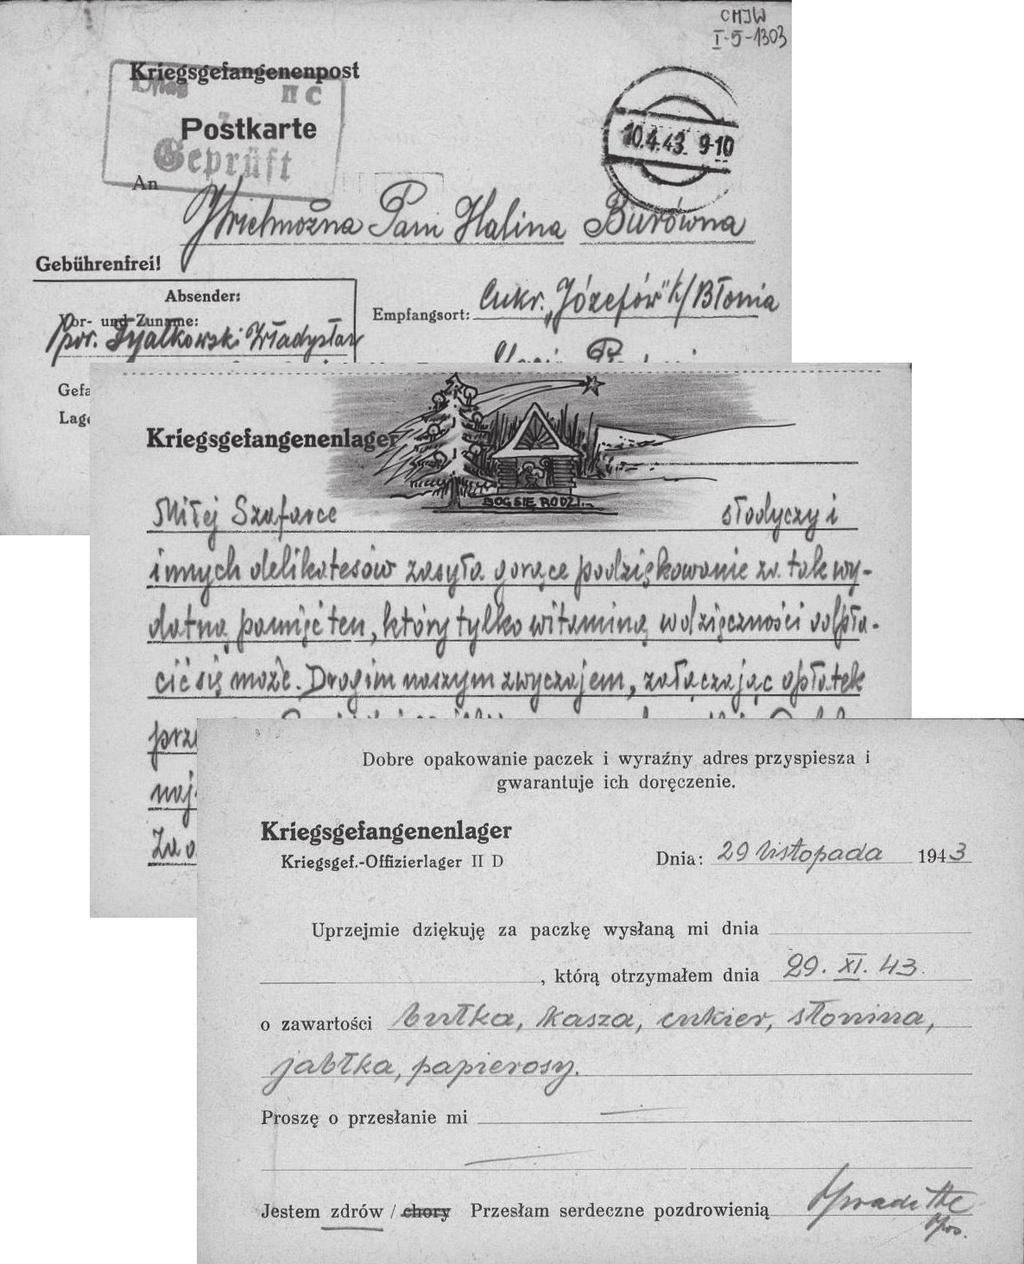 CMJW
I-5-1303
Kriegsgefangenenpost
II C
Postkarte
Geprüft
10.4.43. 9-10
An
Wielmożna Pani Halina Burówna
Gebührenfrei!
Absender:
Vor- und Zuname:
Empfangsort: Cukr. "Józefów" k/Błonia
por. Fijałkowski Władysław
Gefa
Lage
Kriegsgefangenenlager
BÓG SIĘ RODZI...
Miłej Szafarce słodyczy i
innych delikatesów zasyła gorące podziękowanie za tak wy-
datną pamięć ten, który tylko witaminą wdzięczności odpła-
cić się może. Drogim naszym zwyczajem, załączając opłatek
Dobre opakowanie paczek i wyraźny adres przyspiesza i
gwarantuje ich doręczenie.
Kriegsgefangenenlager
Kriegsgef.-Offizierlager II D
Dnia: 29 listopada 1943
Uprzejmie dziękuję za paczkę wysłaną mi dnia
, którą otrzymałem dnia 29. XI. 43.
o zawartości bułka, kasza, cukier, słonina,
jabłka, papierosy.
Proszę o przesłanie mi
Jestem zdrów / chory Przesłam serdeczne pozdrowienia